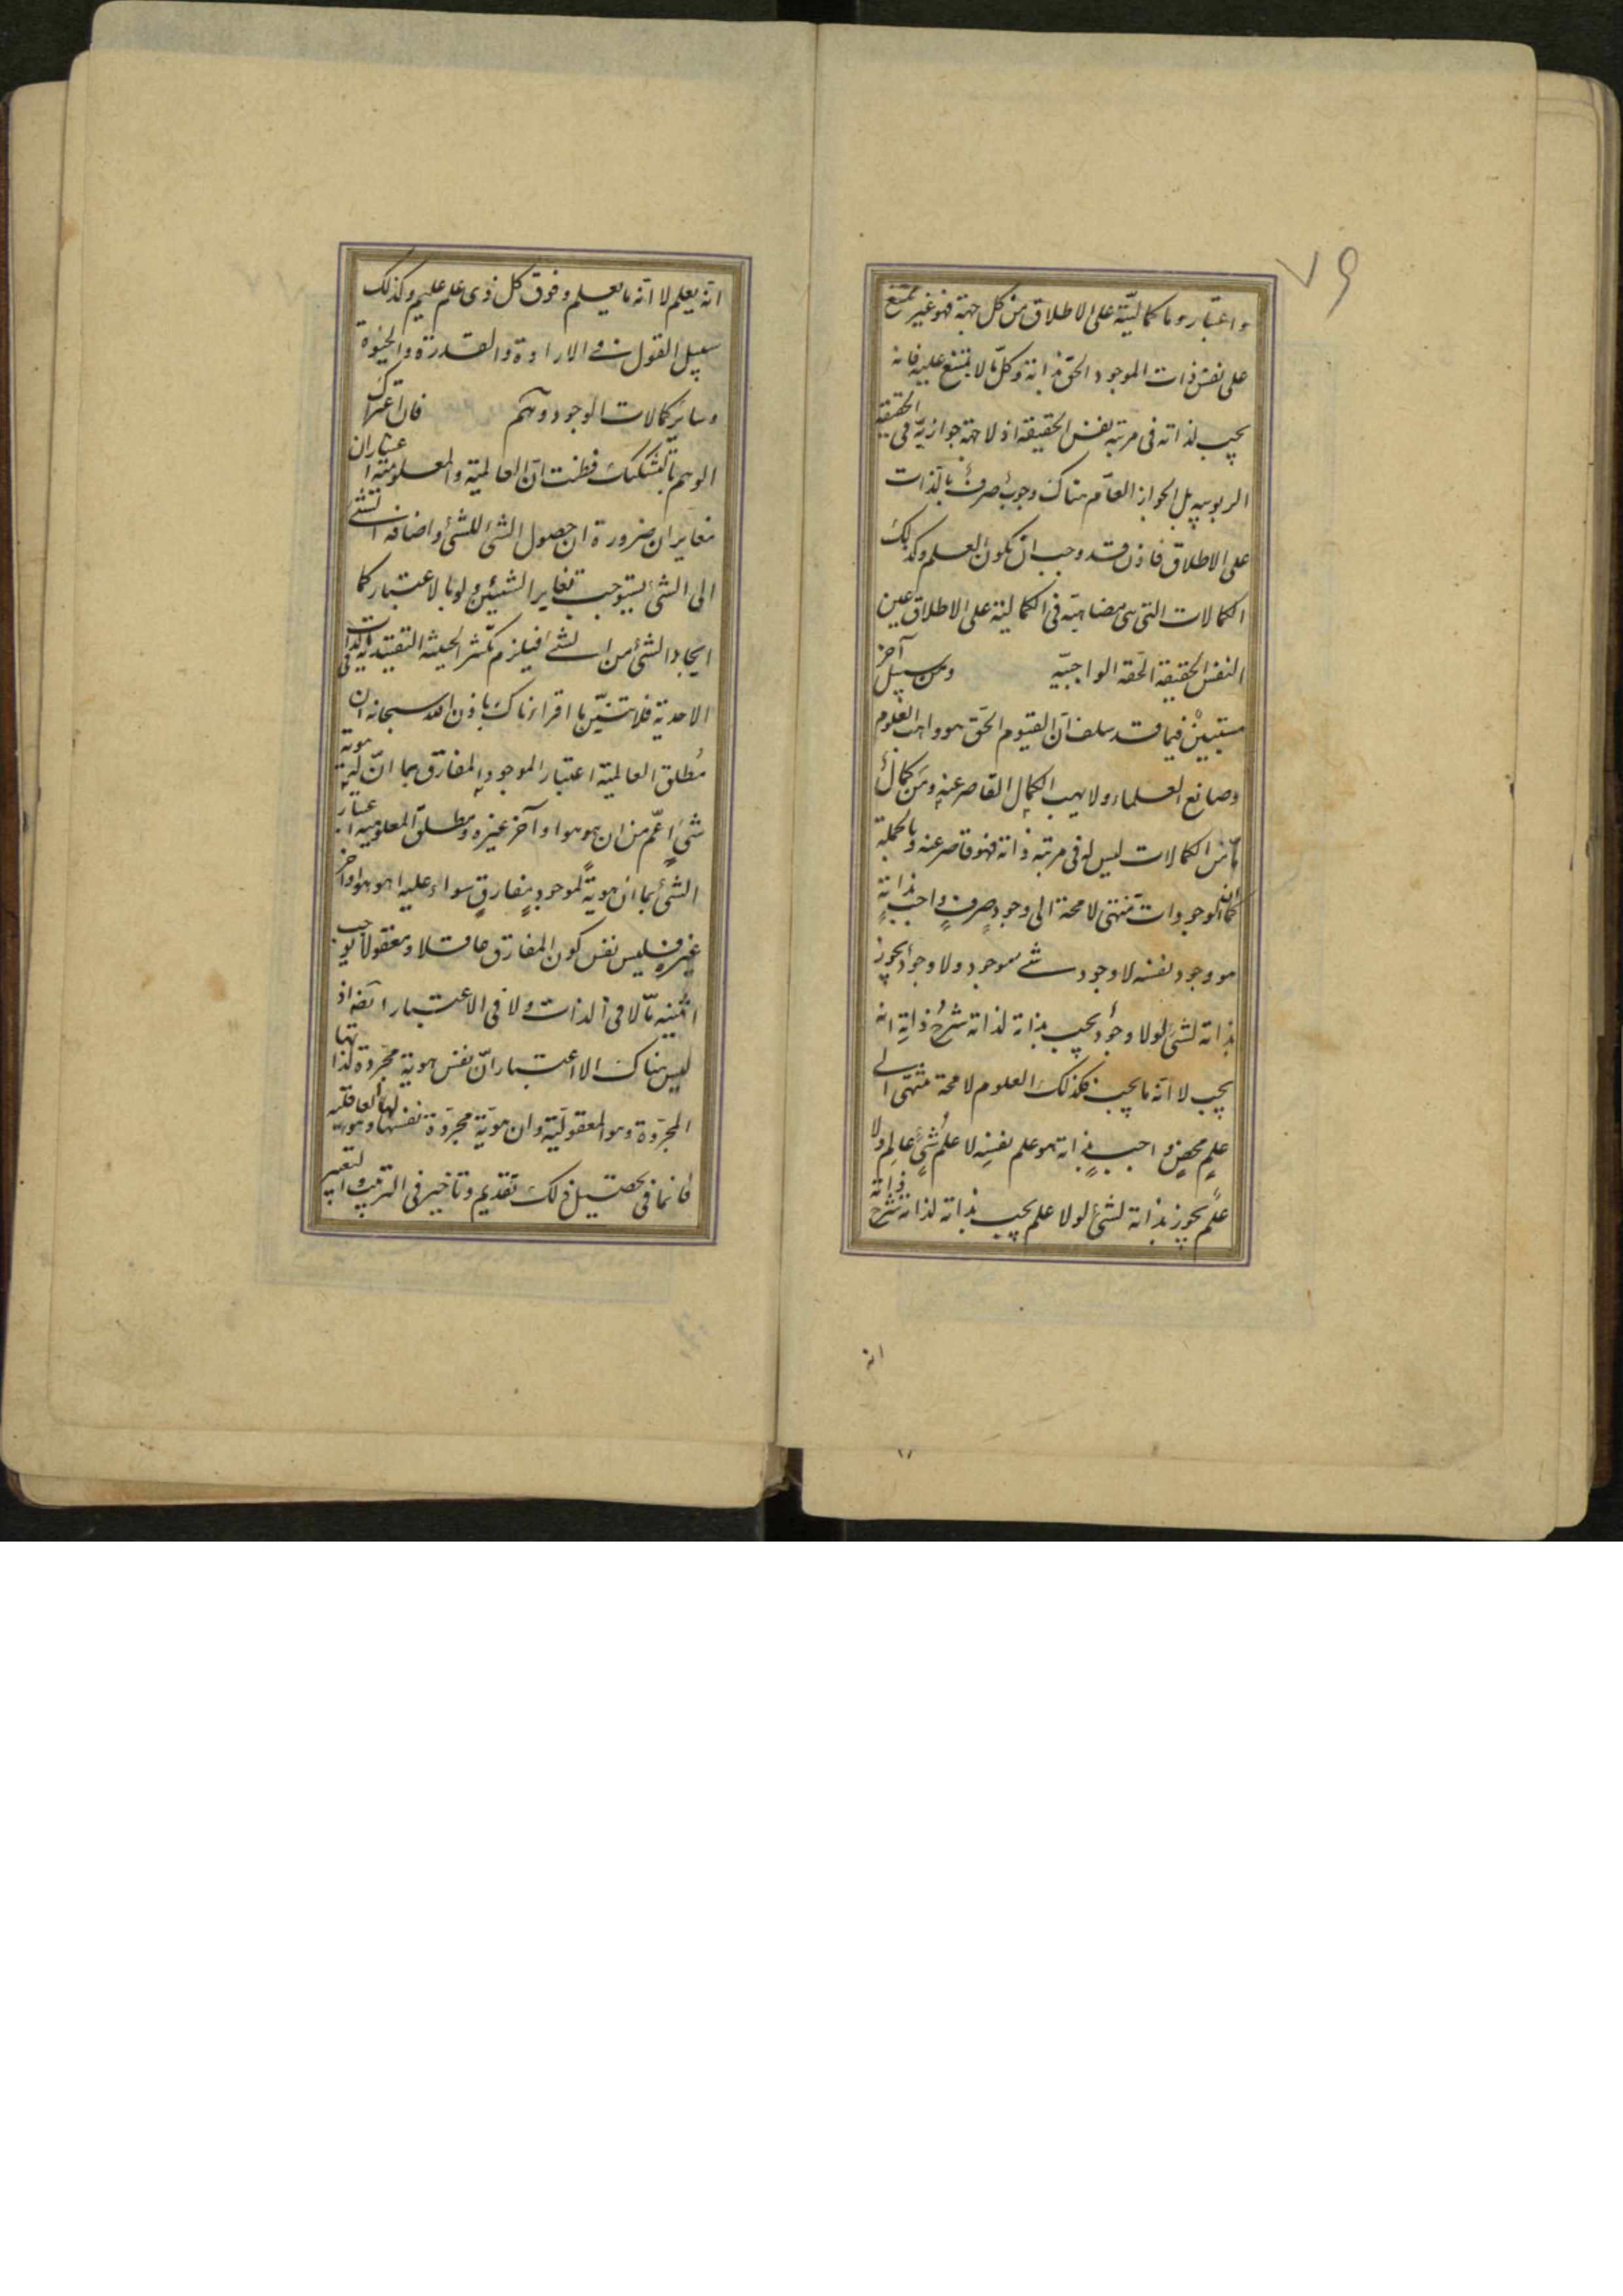 ٧٩
واعتبار وما كماليّة على الاطلاق من كل جهة فهو غير ممتنع
على نفس ذات الموجود الحق بذاته وكل ما لا يمتنع عليه فانه
يجب لذاته فى مرتبة نفس الحقيقة اذ لا جهة جوازية فى الحقيقة
الربوبية بل الجواز العام هناك وجوب صرف بالذات
على الاطلاق فاذن قد وجب ان يكون العلم وكذلك
الكمالات التى هى مضاهية فى الكمالية على الاطلاق عين
النفس الحقيقة الحقه الواجبيّه ومن سبيل آخر
مستبين فيما قد سلف ان القيوم الحق هو واهب العلوم
وصانع العلماء ولا يهب الكمال القاصر عنه ومن كمال
ما من الكمالات ليس له فى مرتبة ذاته فهو قاصر عنه وبالجملة
كما ان الموجودات تنتهى لا محة الى وجود صرف واجب بذاته
هو وجود نفسه لا وجود شئ موجود ولا وجود يجوز
بذاته لشئ لولا وجود يجب بذاته لذاته شرح ذاته انه
يجب لا انه ما يجب فكذلك العلوم لا محة منتهى الى
علم محض واجب بذاته هو علم نفسه لا علم شئ عالم ولا
علم يجوز بذاته لشئ لولا علم يجب بذاته لذاته شرح ذاته
انه
انه يعلم لا انه ما يعلم وفوق كل ذى علم عليم وكذلك
سبيل القول فى الارادة والقدرة والحيوة
وساير كمالات الوجود وهم فان اعتراك
الوهم بالتشكيك فظننت ان العالمية والمعلومية اعتباران
متغايران ضرورة ان حصول الشئ للشئ واضافة الشئ
الى الشئ يستوجب تغاير الشيئين ولو بالاعتبار كما
ايجاد الشئ من الشئ فيلزم تكثر الحيثية التقييدية فى الذات
الاحدية فلا تنسين ما اقراءناك باذن الله سبحانه ان
مطلق العالمية اعتبار الموجود المفارق بما ان له هوية
شئ اعم من ان هو هو او آخر غيره ومطلق المعلومية اعتبار
الشئ بما ان هوية لموجود مفارق سواء عليه اهو هو او آخر
غيره فليس نفس كون المفارق عاقلا ومعقولا يوجب
اثنينيه ما لا فى الذات ولا فى الاعتبار ايضه اذ
ليس هناك الا اعتبار ان نفس هوية مجردة لذاتها
المجردة وهو المعقولية وان هوية مجردة نفسها لها وهو العاقلية
فانما فى تحصيل ذلك تقديم وتاخير فى الترتيب والتعبير